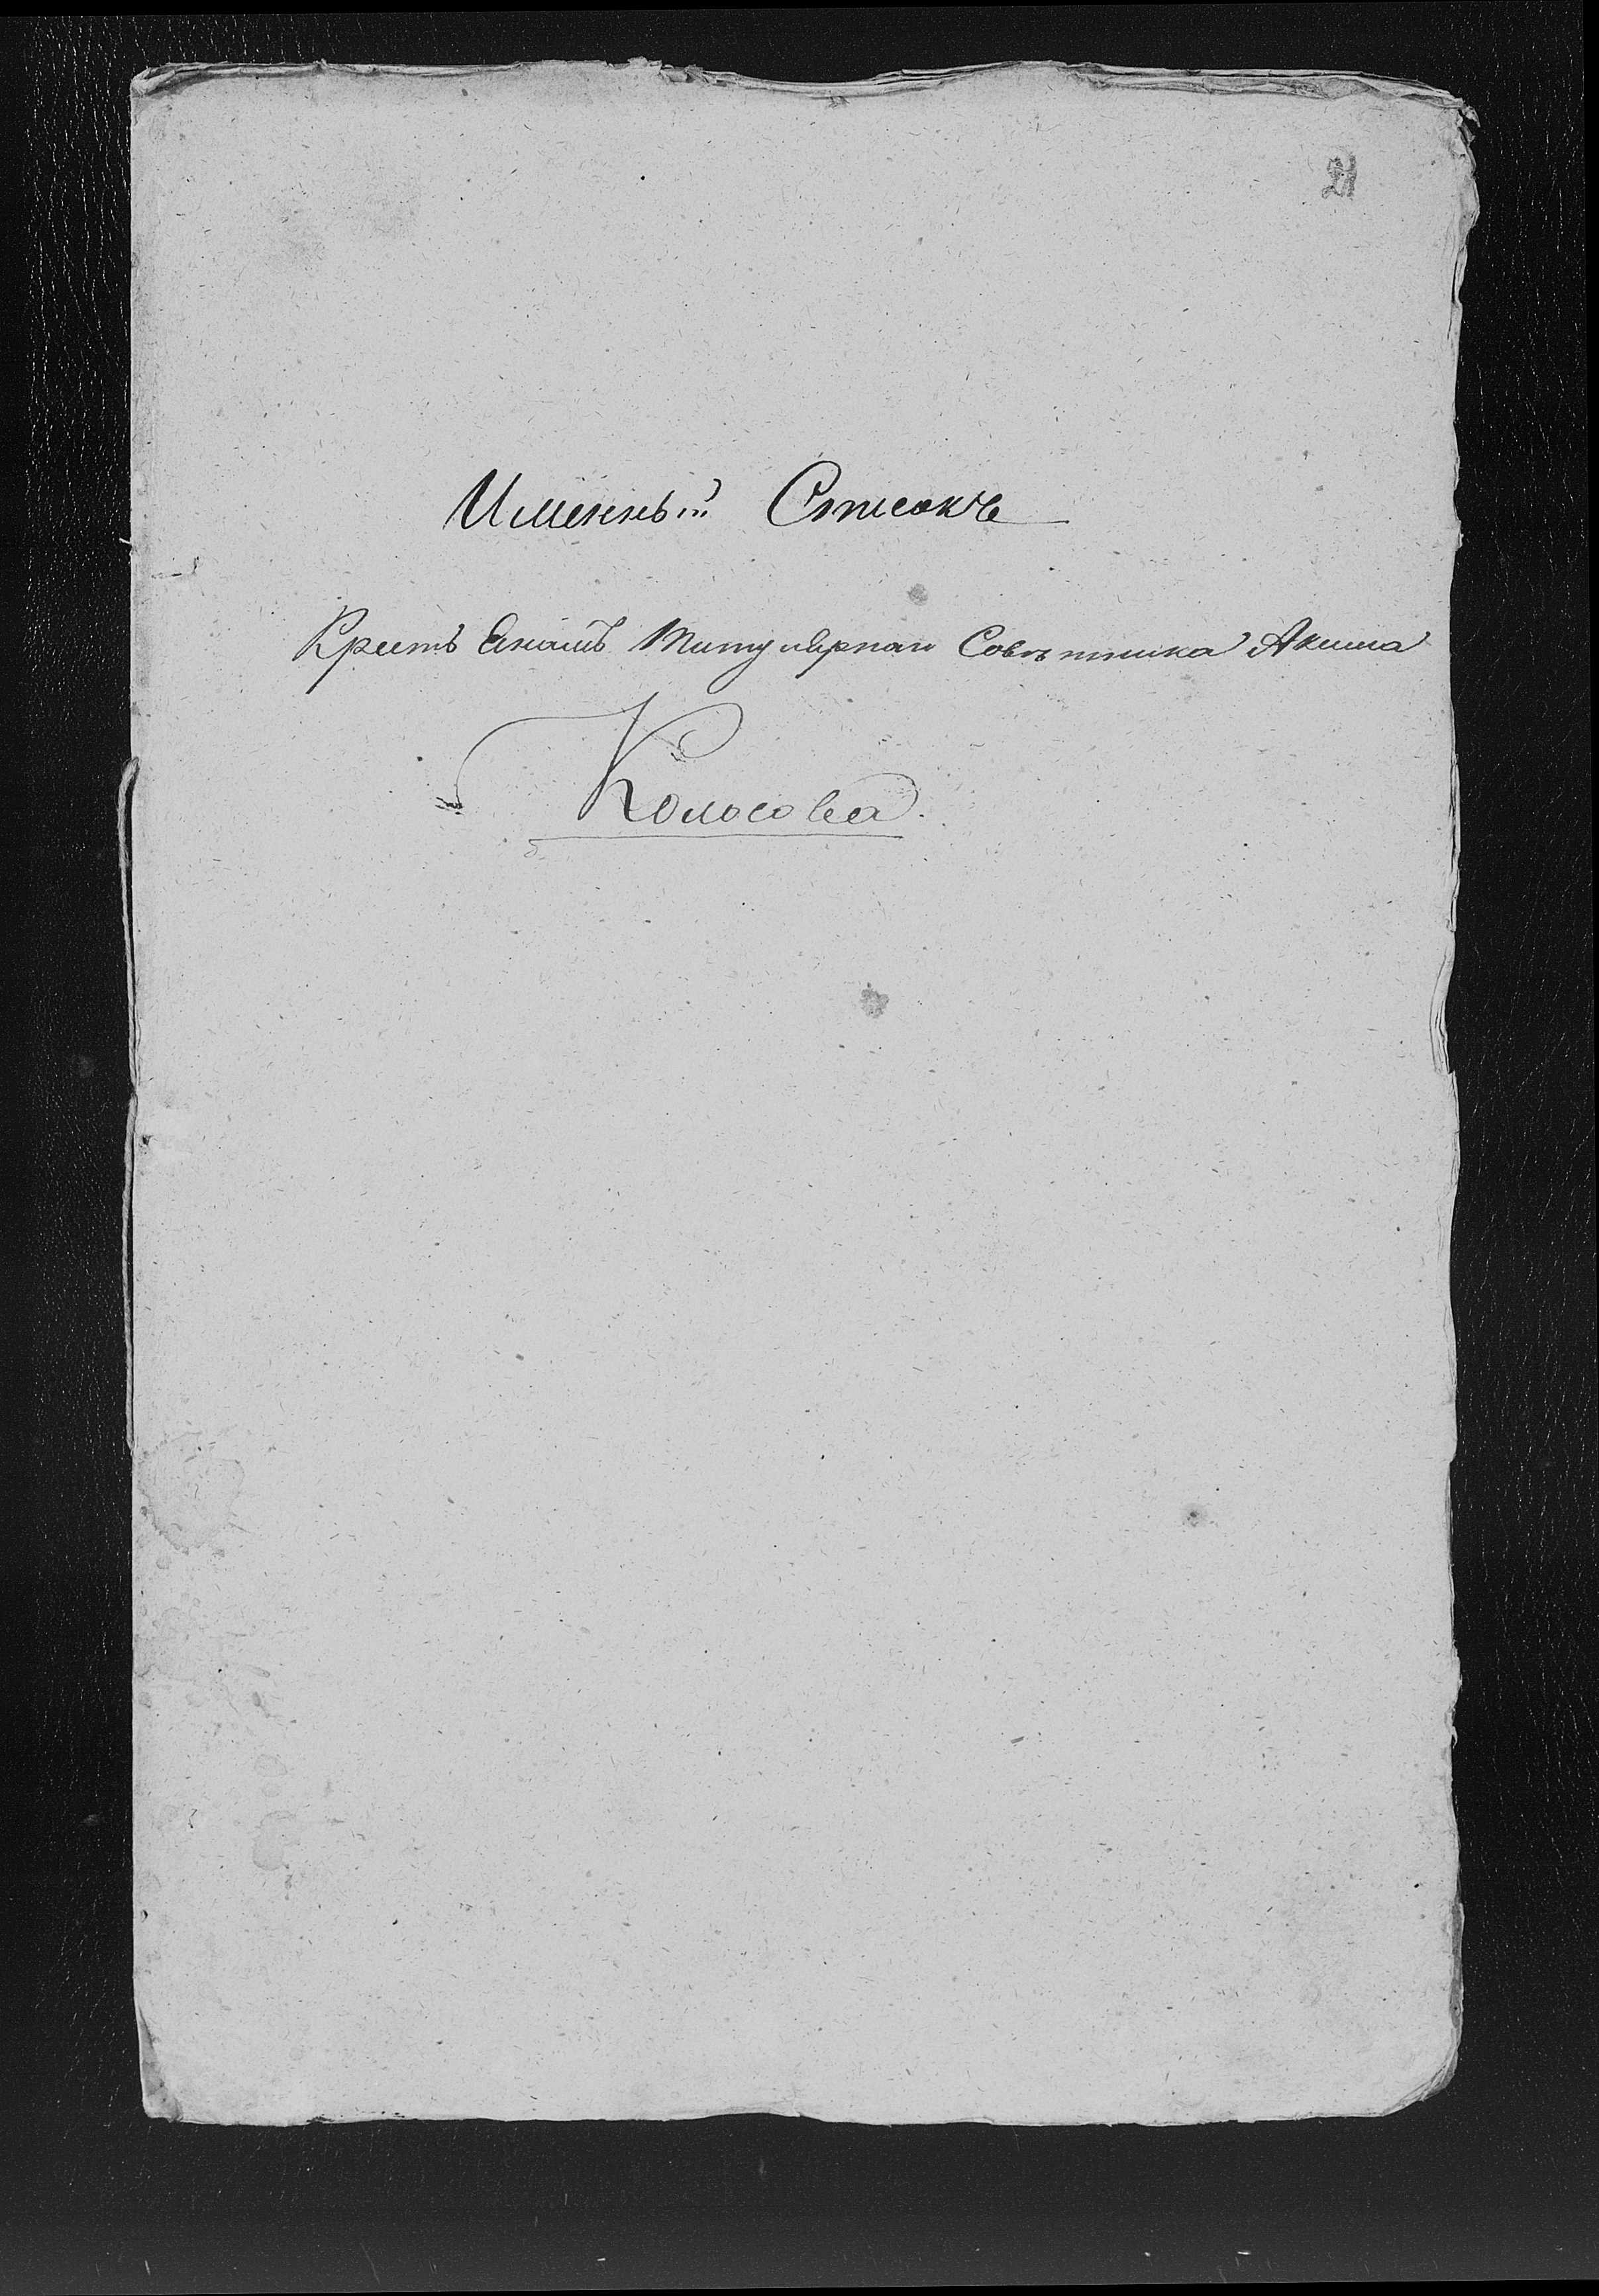 21
Именный Списокъ
Крестьянамъ Титулярнаго Совѣтника Акима
Колосова.